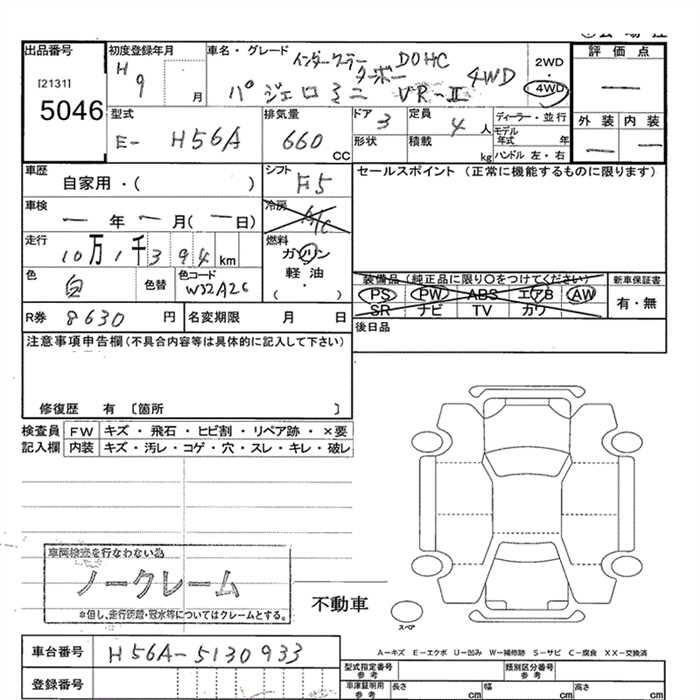 出品番号 初度登録年月 車名・グレード インタークーラー DOHC 2WD 評価点
[2131] H 9 月 ターボー 4WD ・ —
5046 パジェロミニ VR-Ⅱ 4WD
型式 排気量 ドア 3 定員 4 人 ディーラー・並行 外装 内装
E- H56A 660 CC 形状 積載 kg モデル年式 年 — —
ハンドル 左・右
車歴 自家用・( ) シフト F5 セールスポイント (正常に機能するものに限ります)
車検 — 年 — 月 ( — 日) 冷房 A/C
走行 10万1千394 km 燃料 ガソリン
色 白 色替 色コード W32A26 軽油
( ・ )
装備品 (純正品に限り〇をつけてください) 新車保証書
PS PW ABS エアB AW 有・無
SR ナビ TV カワ
R券 8630 円 名変期限 月 日 後日品
注意事項申告欄(不具合内容等は具体的に記入して下さい)
修復歴 有 〔箇所 〕
検査員 FW キズ・飛石・ヒビ割・リペア跡・×要
記入欄 内装 キズ・汚レ・コゲ・穴・スレ・キレ・破レ
車両検査を行なわない為
ノークレーム
※但し、走行距離・冠水等についてはクレームとする。
不動車
スペア
A-キズ E-エクボ U-凹み W-補修跡 S-サビ C-腐食 XX-交換済
車台番号 H56A-5130933
登録番号
型式指定番号 参考 類別区分番号 参考
車庫証明用 参考 長さ cm 幅 cm 高さ cm